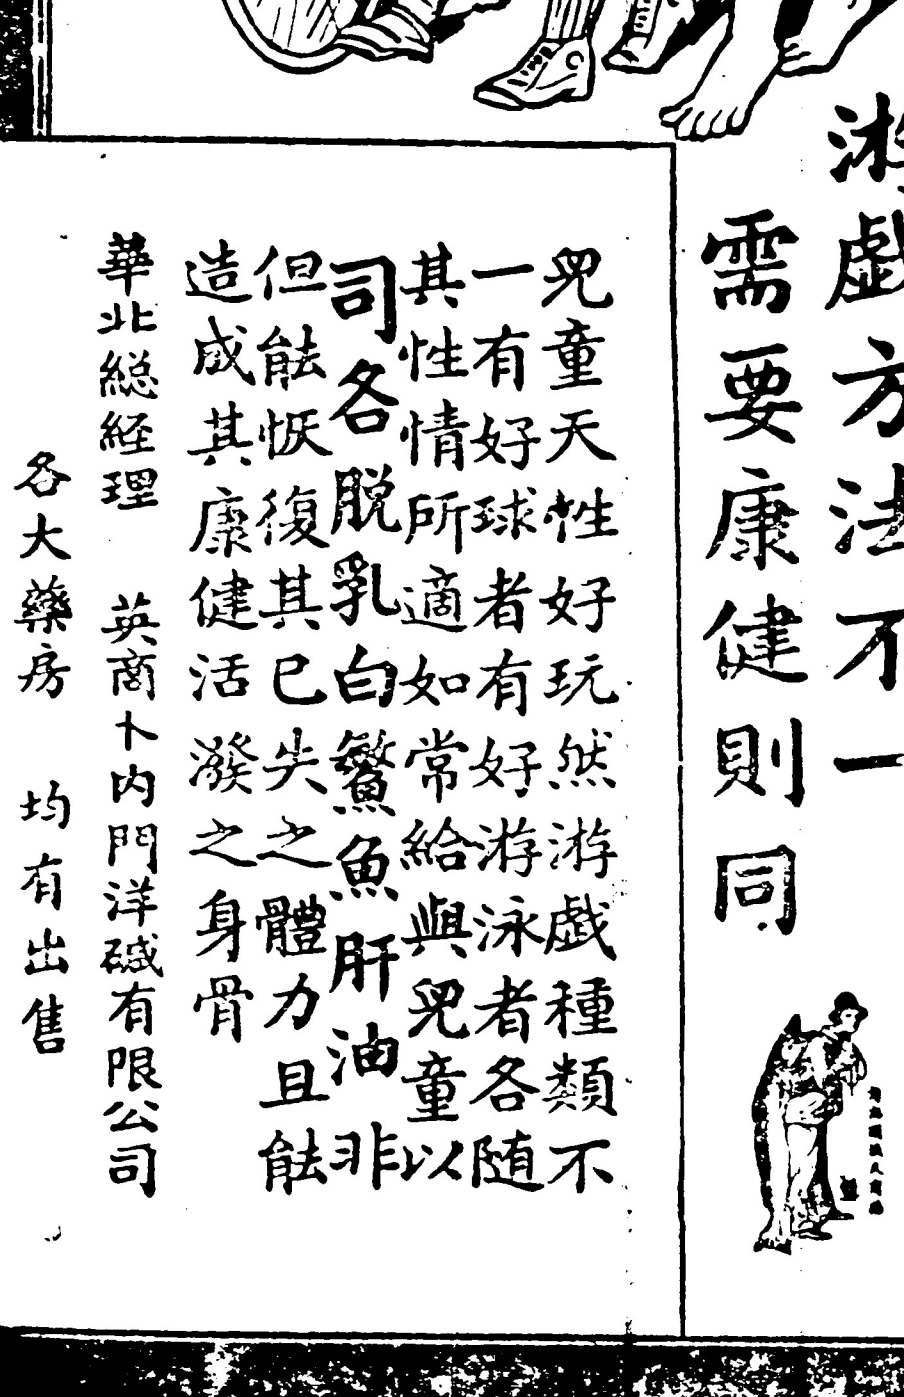 游戲方法不一
需要康健則同
兒童天性好玩然游戲種類不
一有好球者有好游泳者各随
其性情所適如常給與兒童以
司各脱乳白鰵魚肝油非
但能恢復其已失之體力且能
造成其康健活潑之身骨
華北総経理 英商卜内門洋碱有限公司
各大藥房 均有出售